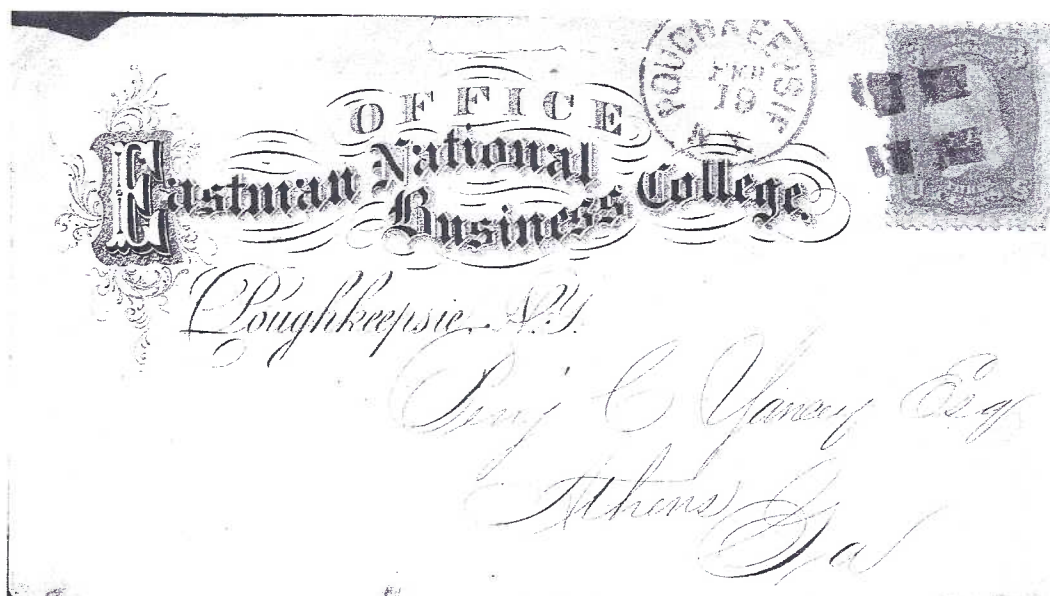 POUGHKEEPSIE
FEB
19
N.Y.
OFFICE
Eastman National Business College.
Poughkeepsie, N.Y.
Benj C Yancey Esq
Athens
Ga